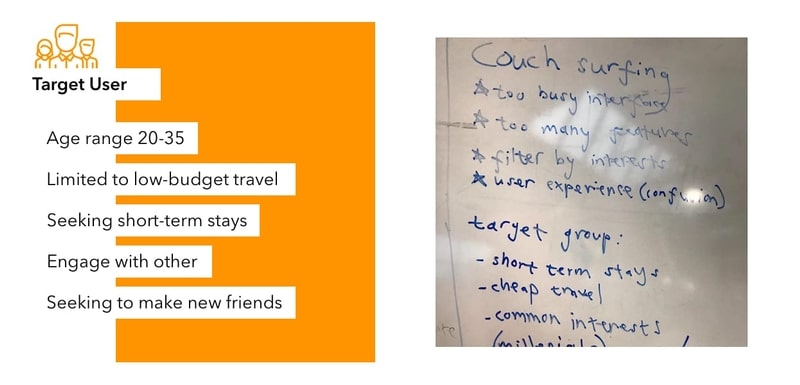 Target User
Age range 20-35
Limited to low-budget travel
Seeking short-term stays
Engage with other
Seeking to make new friends
Couch surfing
☆ too busy interface
☆ too many features
* filter by interests
☆ user experience (confusion)
target group:
- short term stays
- cheap travel
- common interests
(millenials)